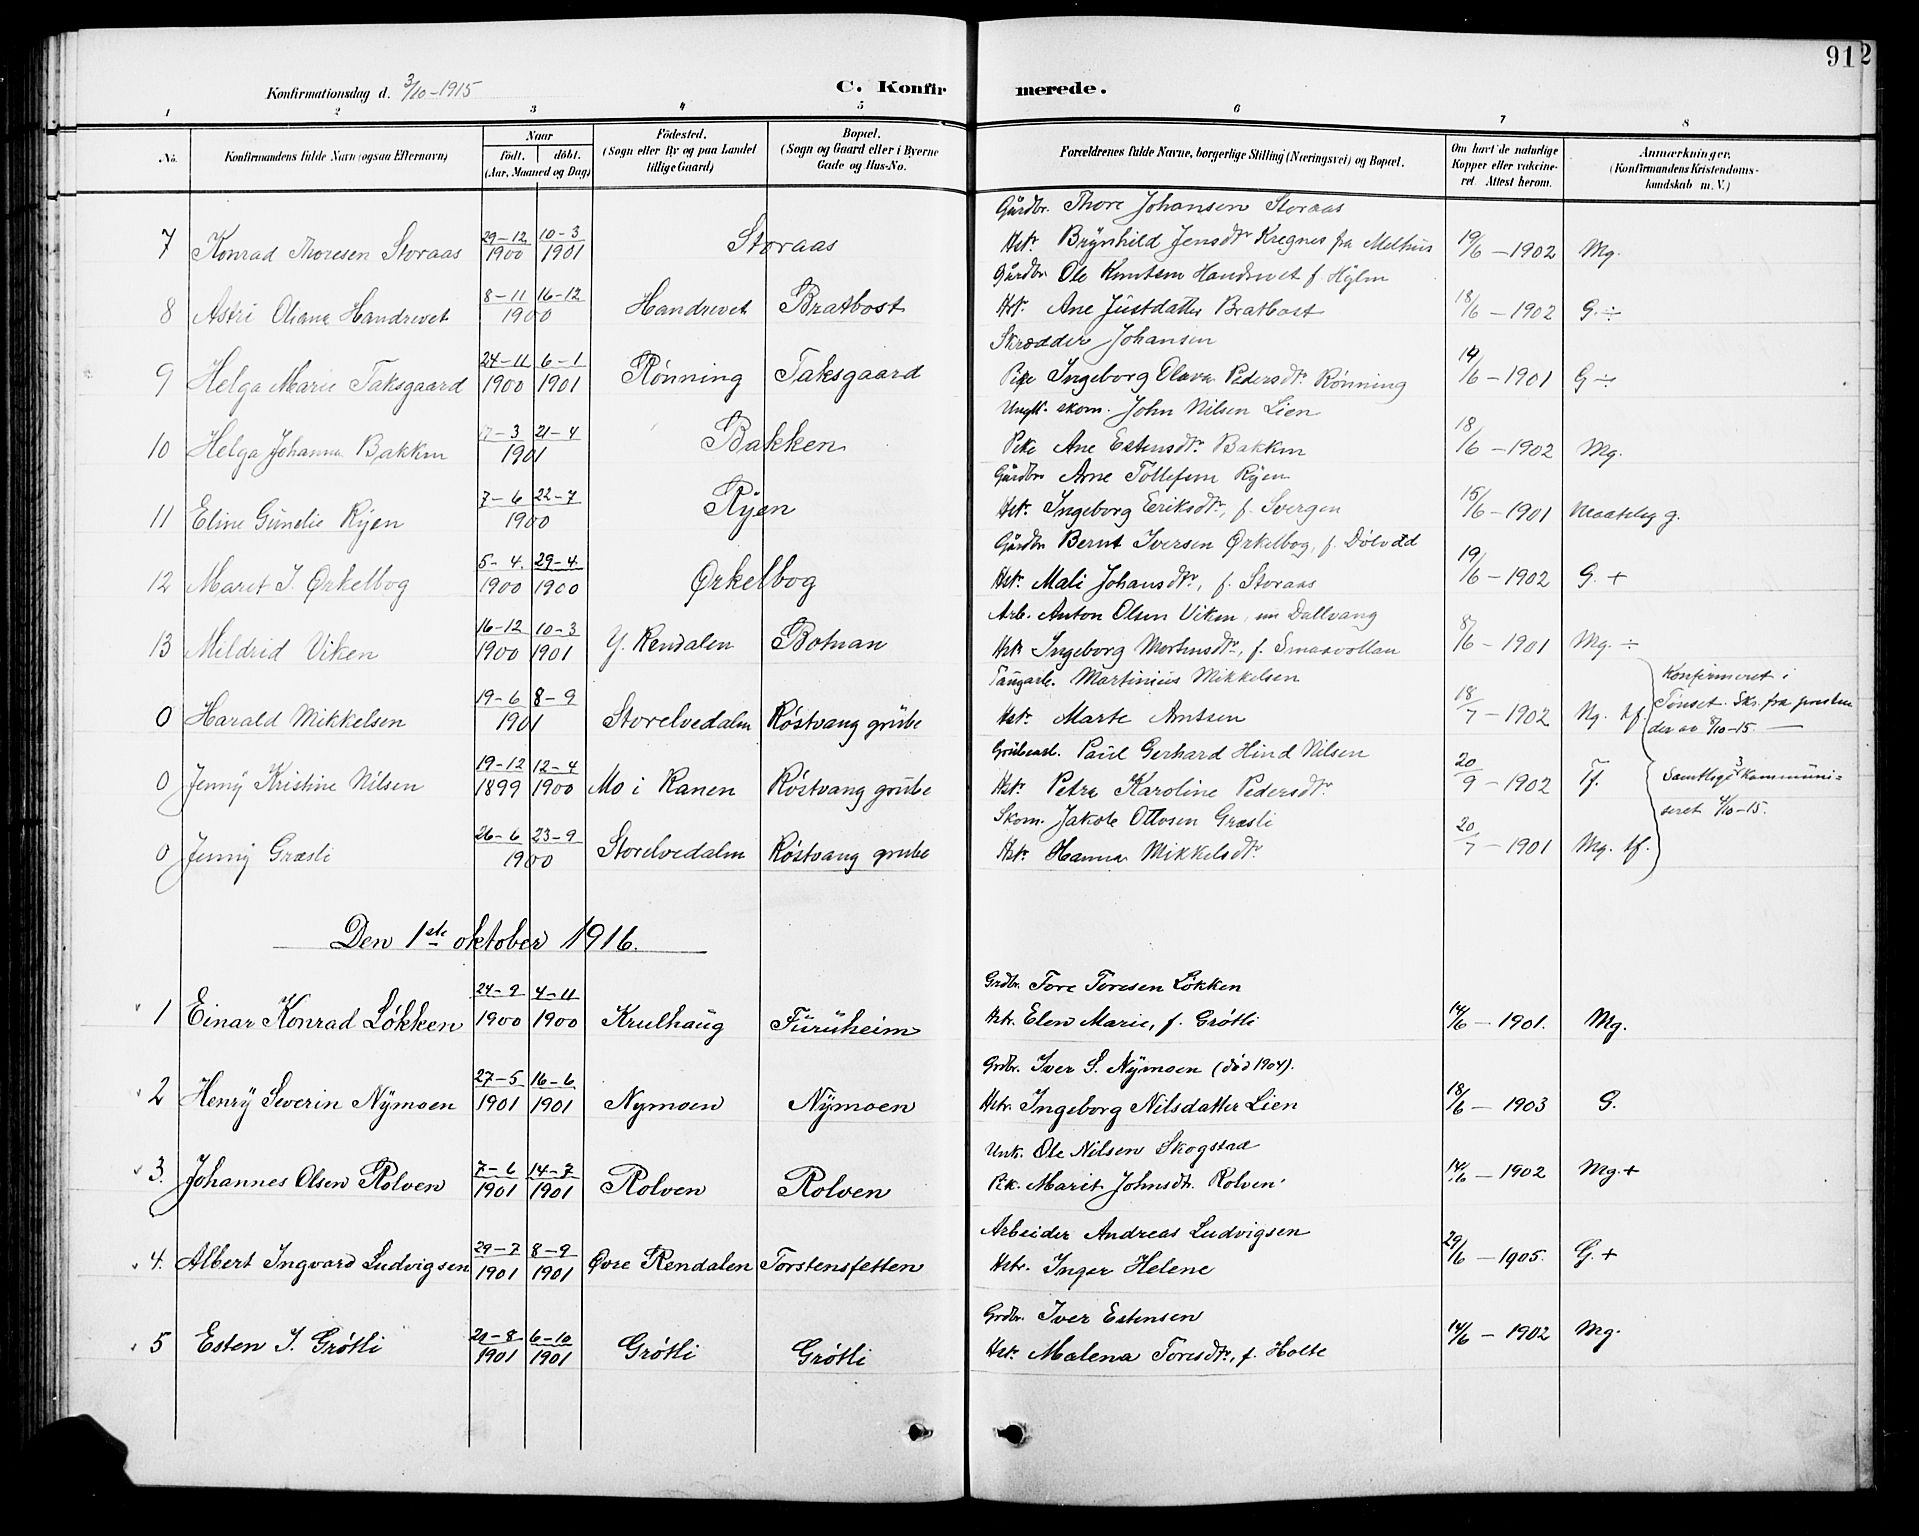 91 2
Konfirmationsdag d. 3/10-1915 C. Konfirmerede.
1 2 3 4 5 6 7 8
No. Konfirmandens fulde Navn (ogsaa Efternavn) Naar födt. döbt. (Aar, Maaned og Dag) Födested. (Sogn eller By og paa Landet tillige Gaard) Bopæl. (Sogn og Gaard eller i Byerne Gade og Hus-No. Forældrenes fulde Navne, borgerlige Stilling (Næringsvei) og Bopæl. Om havt de naturlige Kopper eller vakcineret. Attest herom. Anmærkninger. (Konfirmandens Kristendomskundskab m. V.)
Gårdbr. Thore Johansen Storaas
7 Konrad Thoresen Storaas 29-12 1900 10-3 1901 Storaas Hst. Brynhild Jensdtr Kregnes fra Melhus 19/6 - 1902 Mg.
Gårdbr Ole Knutsen Handrevet f Hylm
8 Astri Oliana Handrevet 8-11 16-12 1900 Handrevet Bratbost Hst. Ane Justdatter Bratbost 18/6 - 1902 G. ÷
Skrædder Johansen
9 Helga Marie Taksgaard 24-11 1900 6-1 1901 Rønning Taksgaard Pike Ingeborg Olava Pedersdtr. Rønning 14/6 - 1901 G ÷
Ungk. skom. John Nilsen Lien
10 Helga Johanna Bakken 17-3 21-4 1901 Bakken Pike Ane Estensdtr. Bakken 18/6 - 1902 Mg.
Gårdbr Arne Tollefsen Ryen
11 Eline Gunelie Ryen 7-6 22-7 1900 Ryen Hst. Ingeborg Eriksdtr, f. Svergen 15/6 - 1901 Maatelig g.
Gårdbr Bernt Iversen Ørkelbog, f. Dølvad
12 Maret J. Ørkelbog 5-4. 1900 29-4. 1900 Ørkelbog Hst. Mali Johansdtr, f. Storaas 19/6 - 1902 G. +
Arb. Anton Olsen Viken, nu Dallvang
13 Mildrid Viken 16-12 1900 10-3 1901 Y. Rendalen Botnan Hst Ingeborg Mortensdtr, f. Smaavollan 8/6 - 1901 Mg. ÷
Martinius Mikkelsen
0 Harald Mikkelsen 19-6 8-9 1901 Storelvedalen Røstvang grube Hst. Marte Antsen 18/7 - 1902 Ng. tf Konfirmeret i Tønset. Skr. fra presten der av 8/10-15.
Grubearb. Paul Gerhard Hind Nilsen
0 Jenny Kristine Nilsen 19-12 1899 12-4 1900 Mo i Ranen Røstvang grube Hst. Petra Karoline Pedersdtr. 20/9 - 1902 Tf. Samtlige 3 kommuniseret 4/10-15.
Skom. Jakob Ottosen Græsli
0 Jenny Græsli 26-6 23-9 1900 Storelvedalen Røstvang grube Hst. Hanna Mikkelsdtr. 20/7 - 1901 Mg. tf.
Den 1ste oktober 1916.
Grdbr. Tore Toresen Løkken
1 Einar Konrad Løkken 24-9 1900 4-11 1900 Krulhaug Furuheim Hstr. Elen Marie, f. Grøtli 14/6 - 1901. Mg.
Grdbr. Iver S. Nymoen (død 1904).
2 Henry Severin Nymoen 27-5 1901 16-6 1901 Nymoen Nymoen Hstr. Ingeborg Nilsdatter Lien 18/6 - 1903 G.
Unk. Ole Nilsen Skogstad
3. Johannes Olsen Rolven 7-6 1901 14-7 1901 Rolven Rolven Pik. Marit Johnsdtr. Rolven 14/6 - 1902 Mg. +
Arbeider Andreas Ludvigsen
4. Albert Ingvard Ludvigsen 29-7 1901 8-9 1901 Øvre Rendalen Torstensfetten Hstr. Inger Helene 29/6 - 1905. G. +
Grdbr. Iver Estensen
5 Esten I. Grøtli 21-8 1901 6-10 1901 Grøtli Grøtli Hst. Malena Toresdtr, f. Holte 14/6 - 1902 Mg.